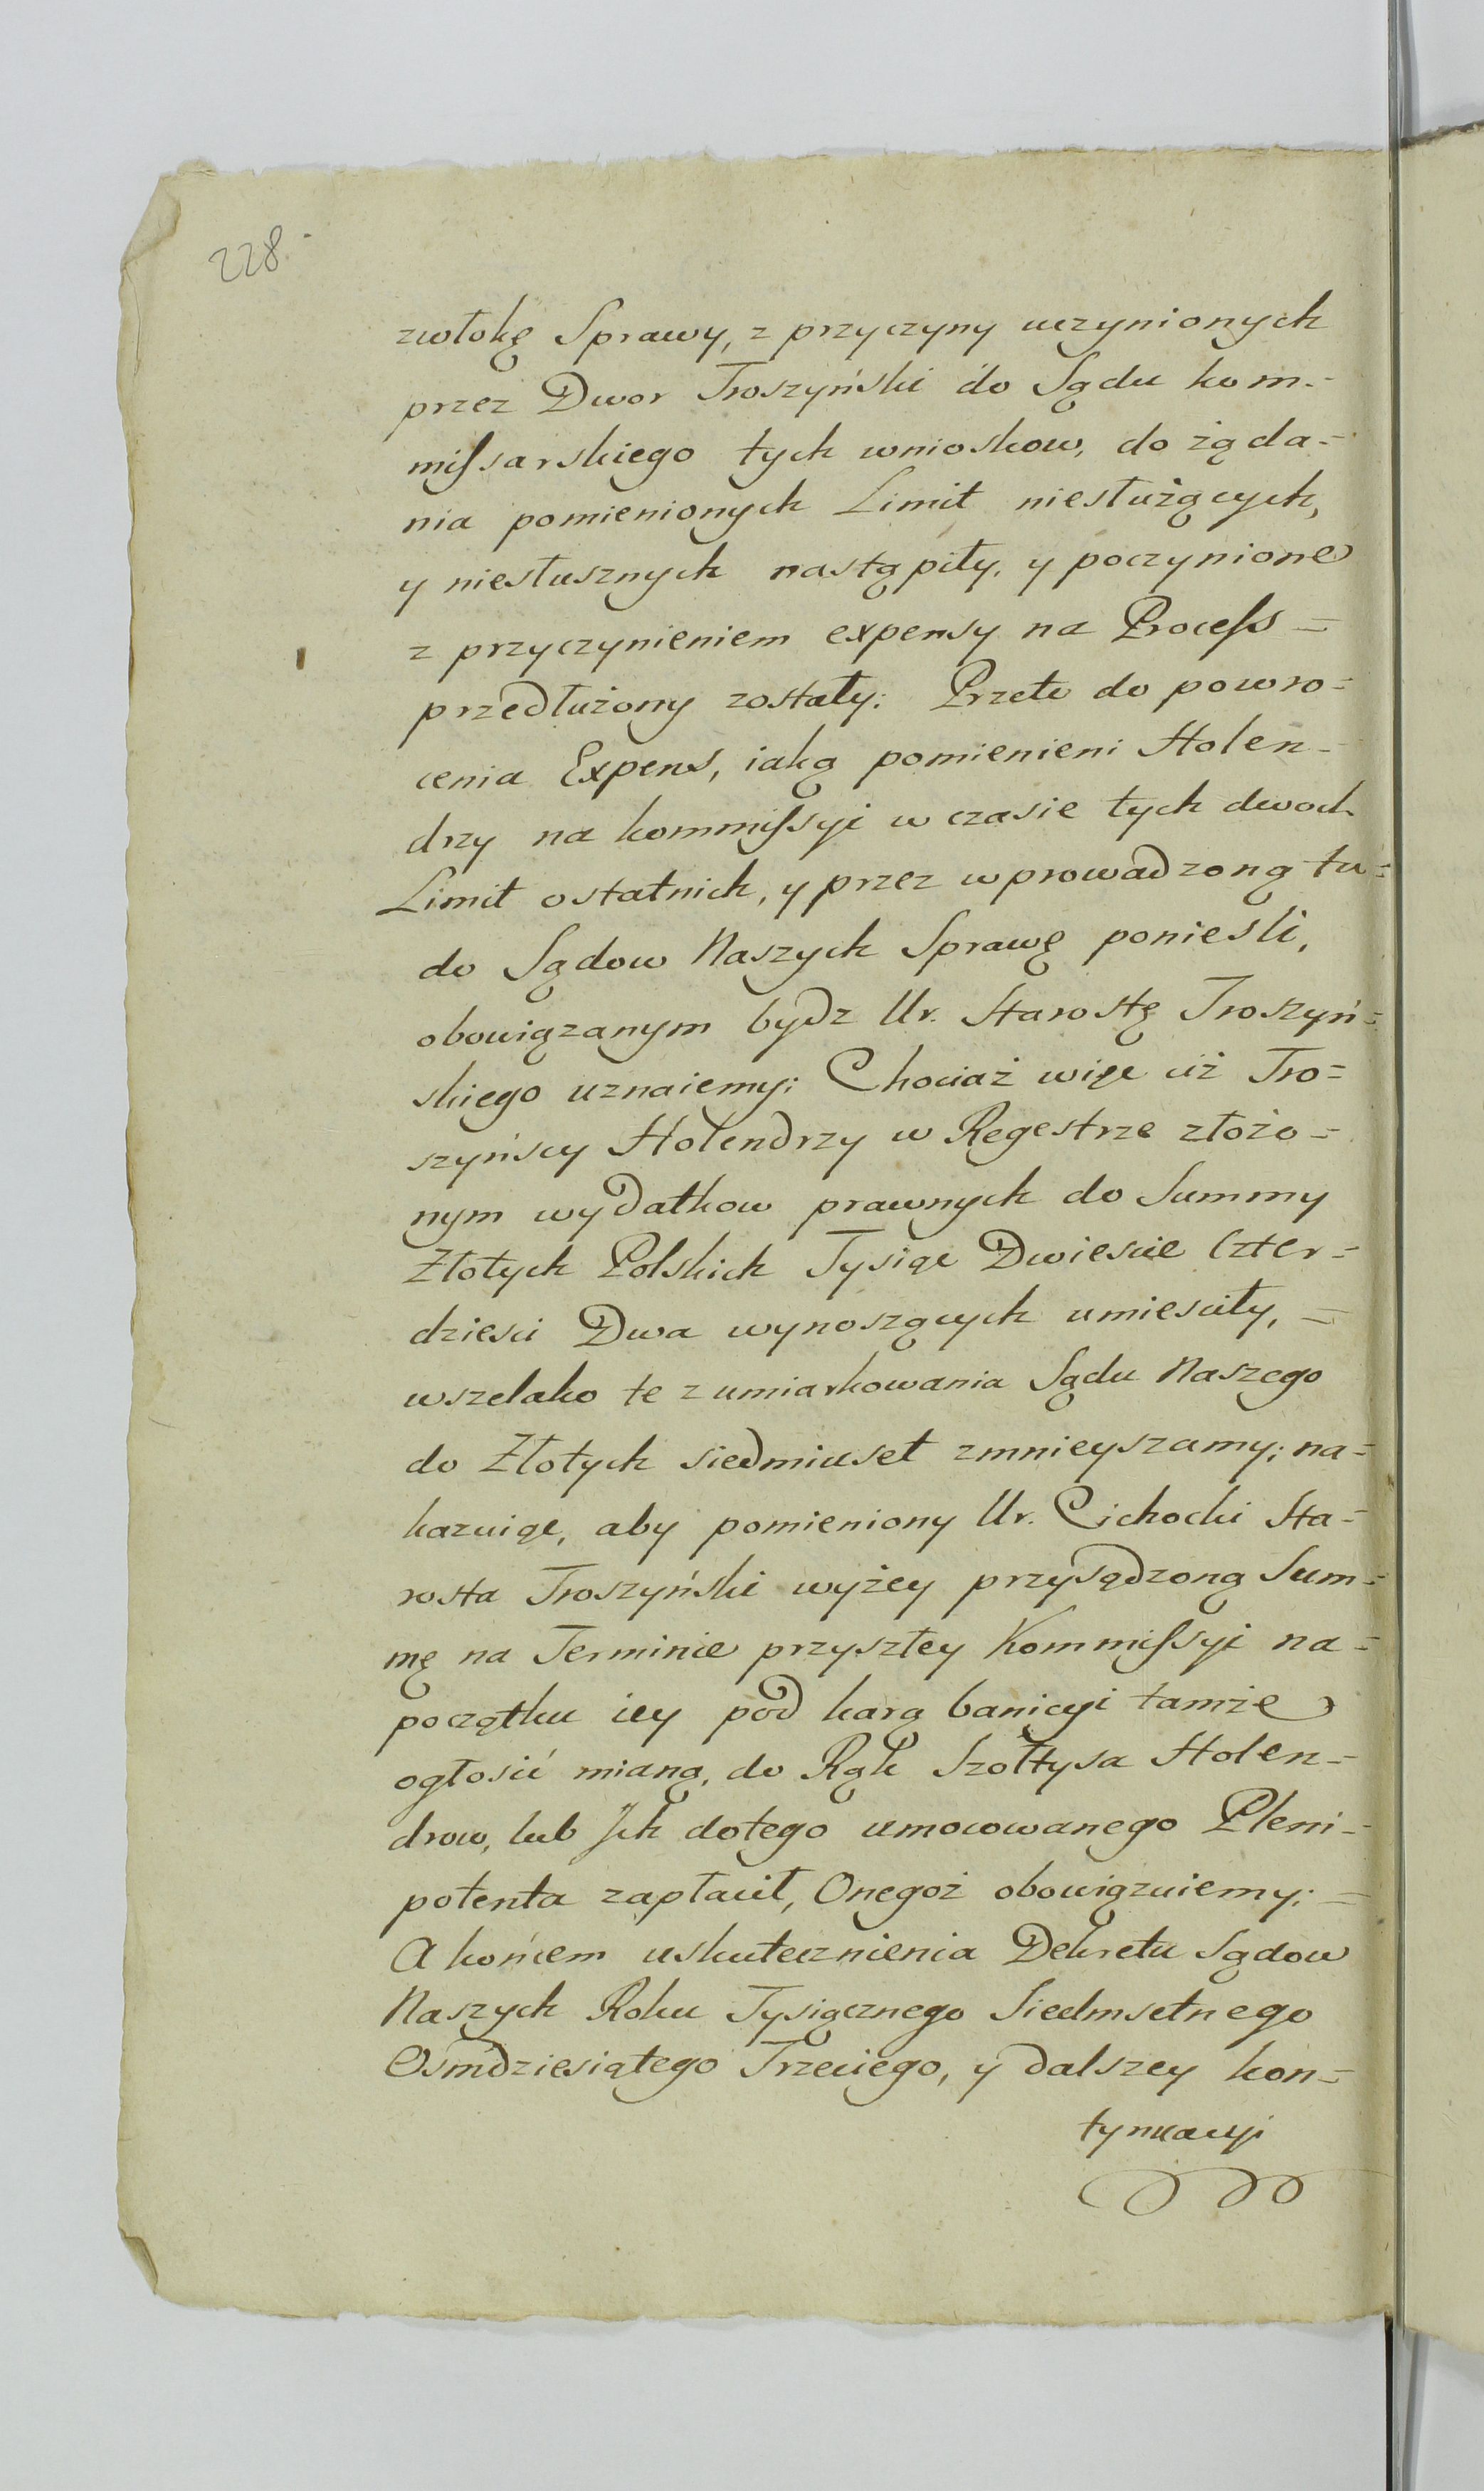 228.
zwłokę Sprawy, z przyczyny uczynionych
przez Dwor Troszyński do Sądu kom-
missarskiego tych wnioskow, do żąda-
nia pomienionych Limit niesłużących,
y niesłusznych nastąpiły, y poczynione
z przyczynieniem expensy na Process =
przedłużony zostały: Przeto do powro=
cenia Expens, iaką pomienieni Holen-
drzy na kommissyi w czasie tych dwoch
Limit ostatnich, y przez wprowadzoną tu=
do Sądow Naszych Sprawę ponieśli,
obowiązanym bydz Ur. Starostę Troszyń=
skiego uznaiemy: Chociaż więc ciż Tro=
szyńscy Holendrzy w Regestrze złożo=
nym wydatkow prawnych do Summy
Złotych Polskich Tysiąc Dwiescie Czter=
dziesci Dwa wynoszących umiesciły, =
wszelako te z umiarkowania Sądu Naszego
do Złotych siedmiuset zmnieyszamy; na=
kazuiąc, aby pomieniony Ur. Cichocki Sta=
rosta Troszyński wyżey przysądzoną Sum=
mę na Terminie przyszłey Kommissyi na=
początku iey pod karą banicyi tamże
ogłosić mianą, do Rąk Szołtysa Holen=
drow, lub Ich dotego umocowanego Pleni=
potenta zapłacił, Onegoż obowiązuiemy; =
A końcem uskutecznienia Dekretu Sądow
Naszych Roku Tysiącznego Siedmsetnego
Osmdziesiątego Trzeciego, y dalszey kon=
tynuacyi